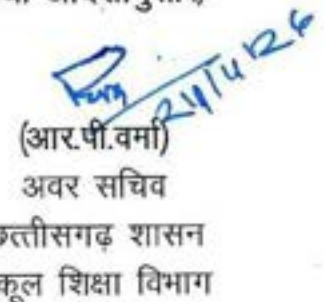 24/4/26
(आर.पी.वर्मा)
अवर सचिव
छत्तीसगढ़ शासन
स्कूल शिक्षा विभाग